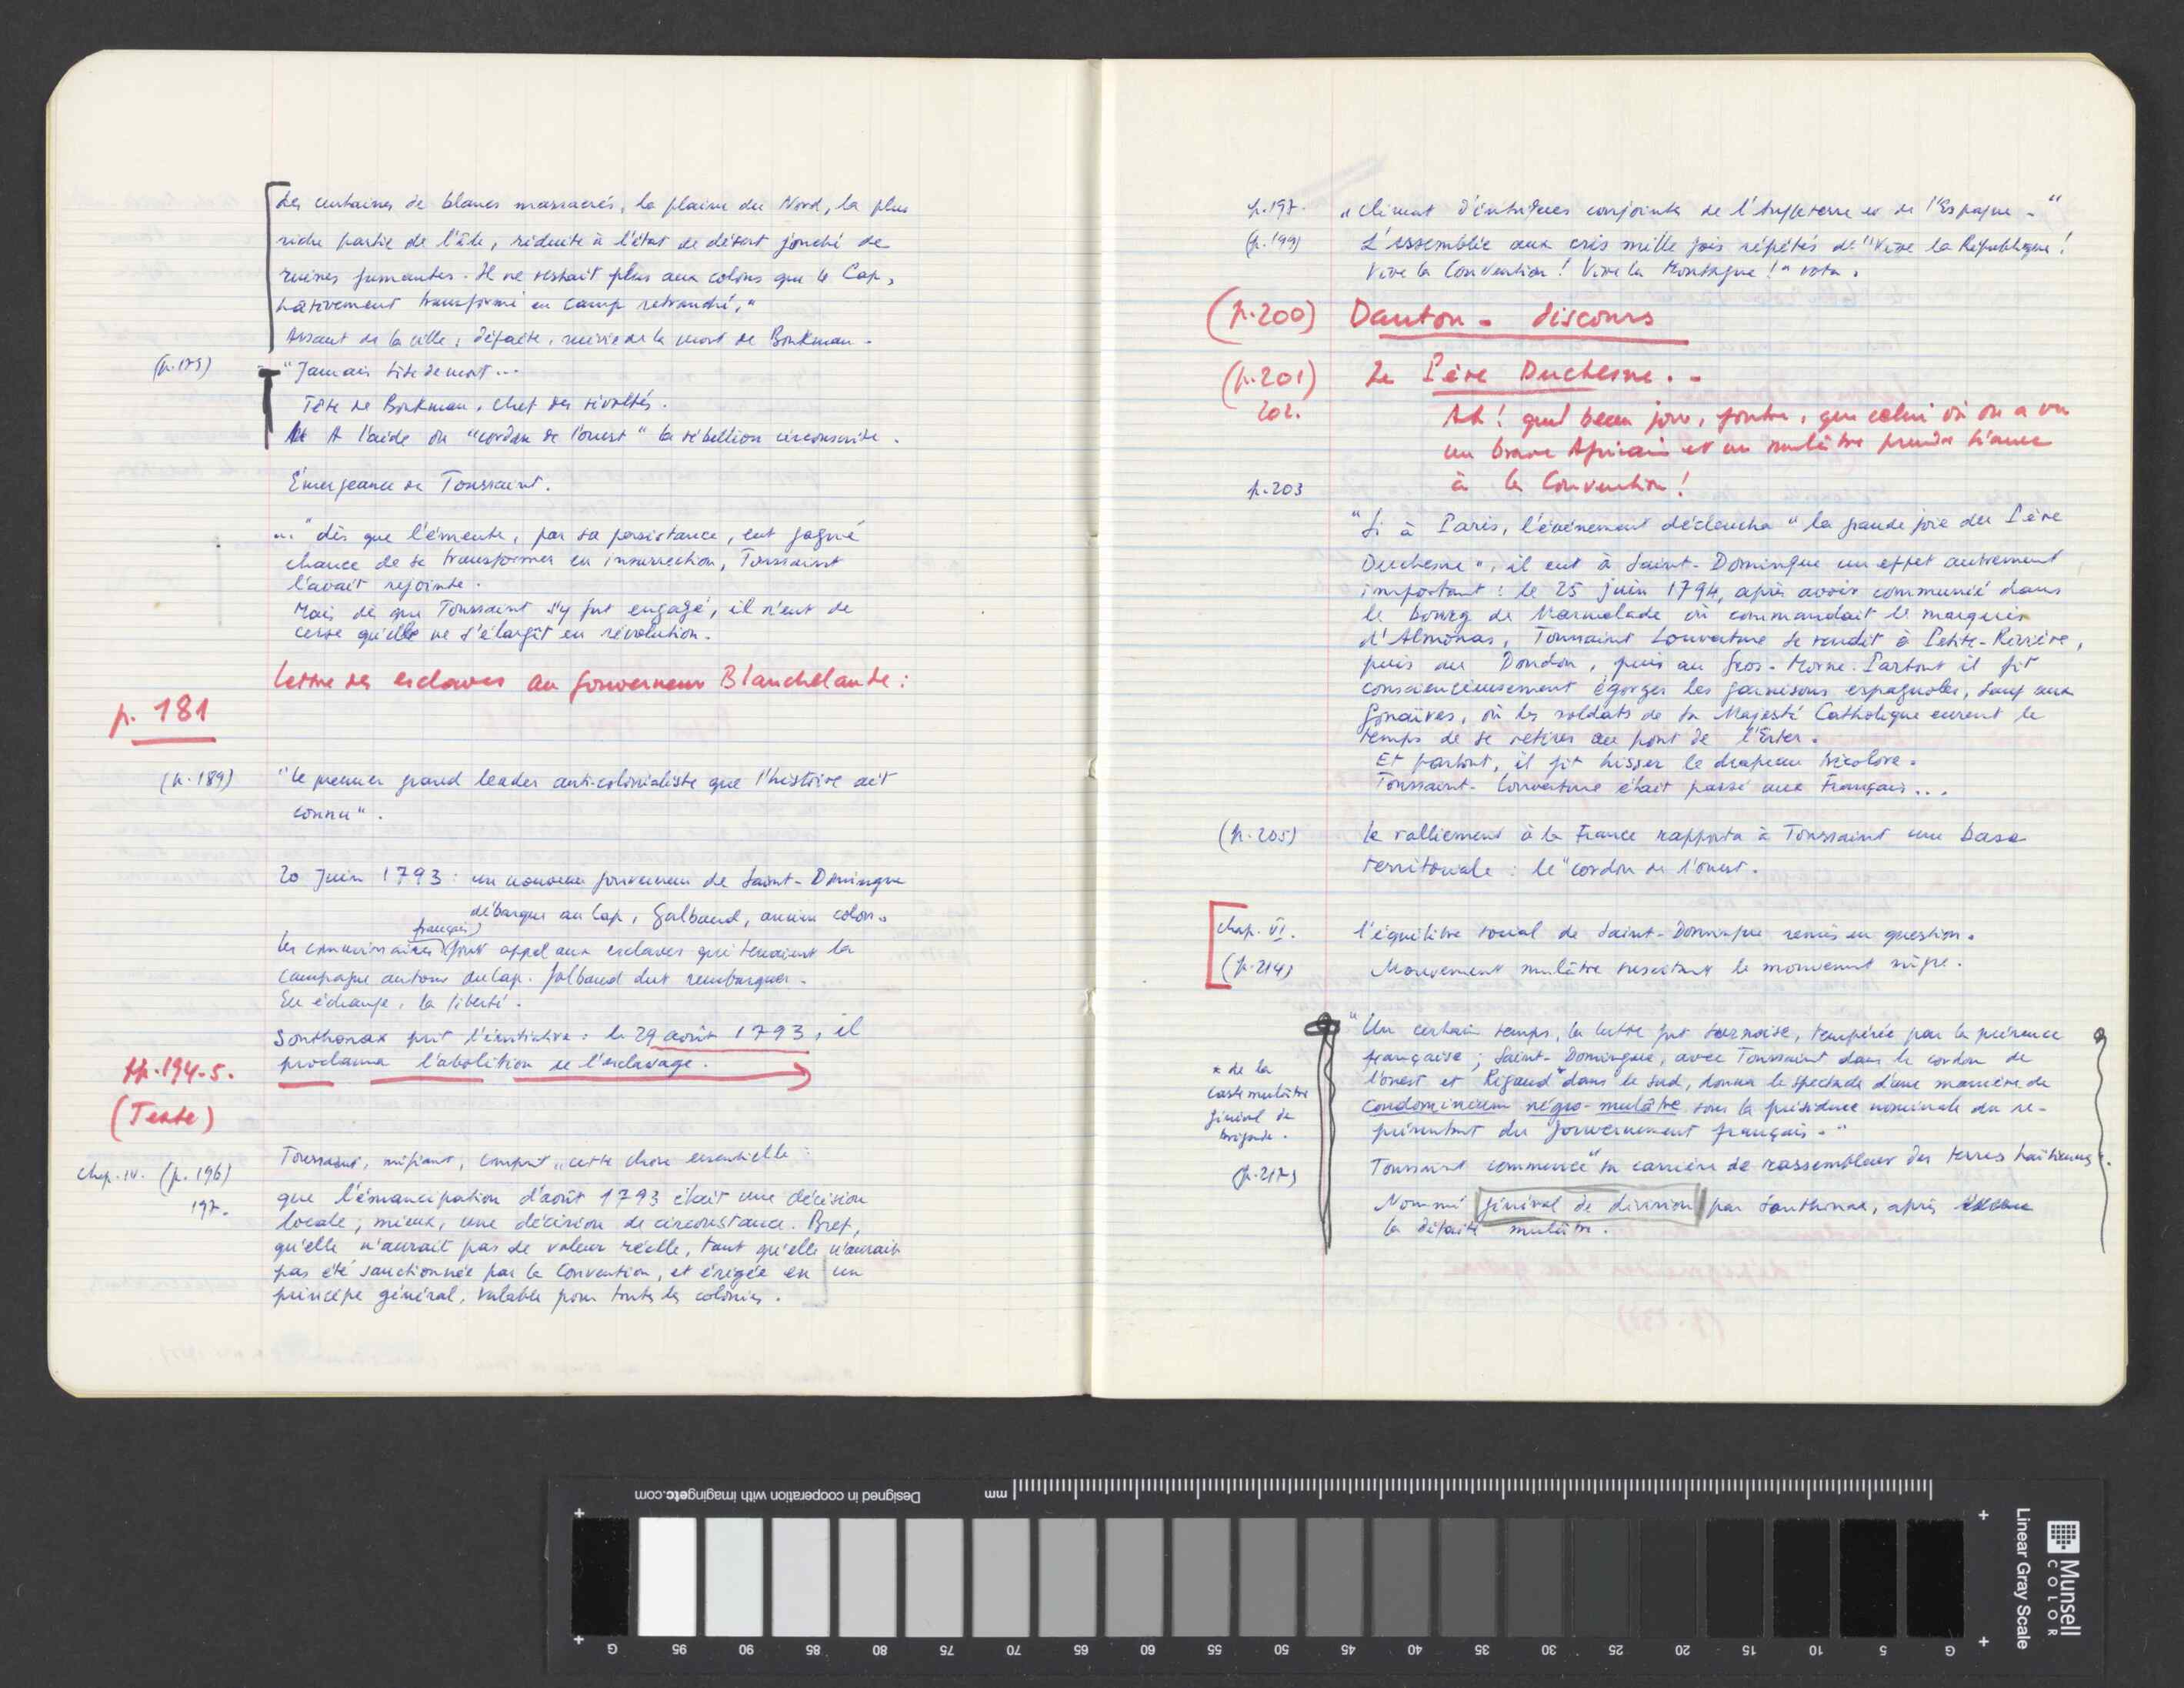 des centaines de blancs massacrés, la plaine du Nord, la plus
riche partie de l'île, réduite à l'état de désert jonché de
ruines fumantes. Il ne restait plus aux colons que le Cap,
hâtivement transformé en camp retranché,"
Assaut de la ville, défaite, suivie de la mort de Boukman.
(p.179) "Jamais tête de mort...
Tête de Boukman, chef des révoltés.
A l'aide du "cordon de l'ouest" la rébellion circonscrite.
Émergeance de Toussaint.
..."dès que l'émeute, par sa persistance, eut gagné
chance de se transformer en insurrection, Toussaint
l'avait rejointe.
Mais dès que Toussaint s'y fut engagé, il n'eut de
cesse qu'elle ne s'élargît en révolution.
Lettre des esclaves au gouverneur Blanchelande :
p. 181
(p.189) "Le premier grand leader anti-colonialiste que l'histoire ait
connu".
20 Juin 1793 : un nouveau gouverneur de Saint-Domingue
débarque au Cap, Galbaud, ancien colon.
français
Les commissaires font appel aux esclaves qui tenaient la
campagne autour du Cap. Galbaud dut rembarquer.
En échange, la liberté.
Sonthonax prit l'initiative : le 29 août 1793, il
proclama l'abolition de l'esclavage.
pp.194-5.
(Texte)
Toussaint, méfiant, comprit "cette chose essentielle :
Chap. IV. (p. 196) que l'émancipation d'août 1793 était une décision
197. locale, mieux, une décision de circonstance. Bref,
qu'elle n'aurait pas de valeur réelle, tant qu'elle n'aurait
pas été sanctionnée par la Convention, et érigée en un
principe général, valable pour toutes les colonies.
p.197. "Climat d'intrigues conjointes de l'Angleterre et de l'Espagne."
(p.199) L'assemblée aux cris mille fois répétés de "Vive la République!
Vive la Convention! Vive la Montagne!" vota.
(p.200) Danton - discours
(p.201) Le Père Duchesne. -
202. Ah! quel beau jour, foutre, que celui où on a vu
un brave Africain et un mulâtre prendre séance
à la Convention!
p.203
"Si à Paris, l'événement déclencha "la grande joie du Père
Duchesne", il eut à Saint-Domingue un effet autrement
important : le 25 juin 1794, après avoir communié dans
le bourg de Marmelade où commandait le marquis
d'Almonas, Toussaint Louverture se rendit à Petite-Rivière,
puis au Dondon, puis au Gros-Morne. Partout il fit
consciencieusement égorger les garnisons espagnoles, sauf aux
Gonaïves, où les soldats de Sa Majesté Catholique eurent le
temps de se retirer au pont de l'Ester.
Et partout, il fit hisser le drapeau tricolore.
Toussaint-Louverture était passé aux Français...
(p.205) Le ralliement à la France rapporta à Toussaint une base
territoriale : le "cordon de l'ouest.
Chap. VI. L'équilibre social de Saint-Domingue remis en question.
(p.214) Mouvement mulâtre suscitant le mouvement nègre.
"Un certain temps, la lutte fut sournoise, tempérée par la présence
française ; Saint-Domingue, avec Toussaint dans le cordon de
l'ouest et Rigaud* dans le sud, donna le spectacle d'une manière de
condominium négro-mulâtre sous la présidence nominale du re-
présentant du gouvernement français."
* de la
caste mulâtre
général de
brigade.
(p.217) Toussaint commence "sa carrière de rassembleur des terres haïtiennes".
Nommé général de division par Sonthonax, après
la défaite mulâtre.
Designed in cooperation with imagingetc.com
mm
G 95 90 85 80 75 70 65 60 55 50 45 40 35 30 25 20 15 10 5 G
Linear Gray Scale
Munsell
COLOR